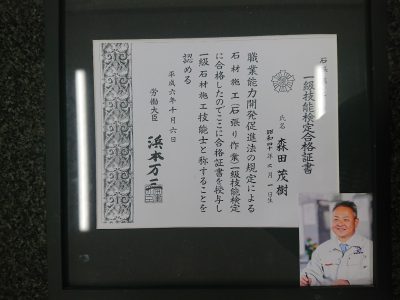 一級技能検定合格証書
氏名 森田茂樹
職業能力開発促進法の規定による
石材施工(石張り作業)一級技能検定
に合格したのでここに合格証書を授与し
一級石材施工技能士と称することを
認める
平成六年十月六日
労働大臣 浜本万三